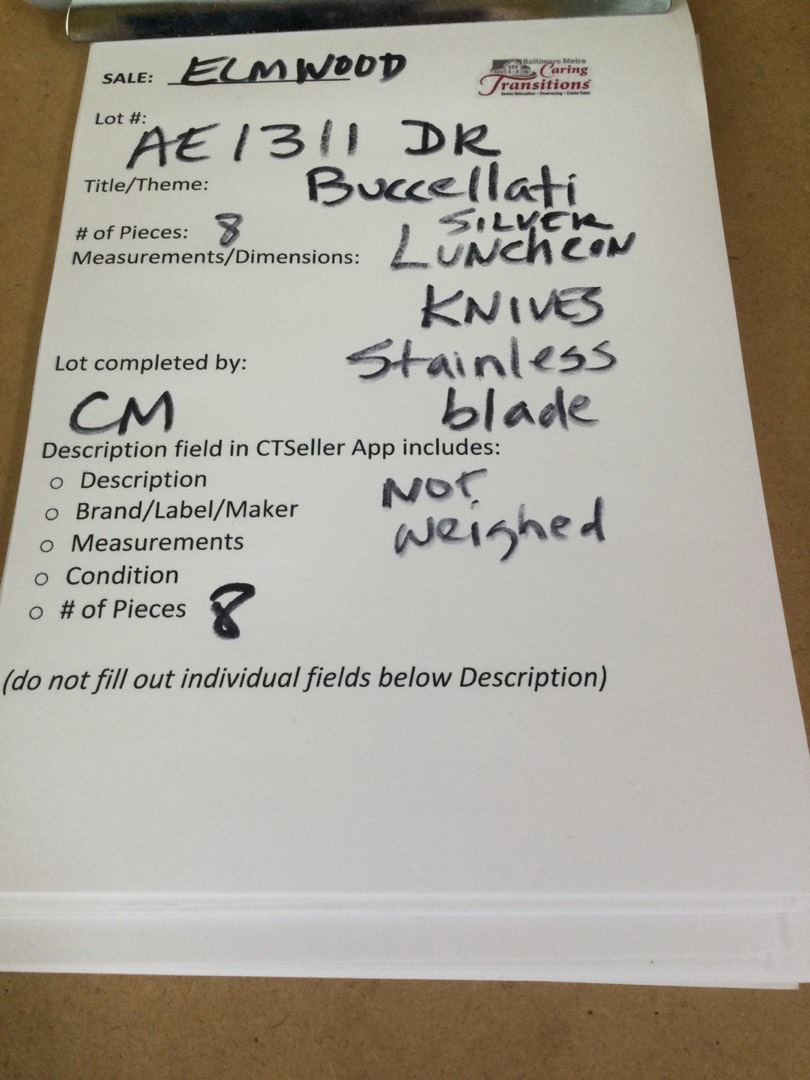 SALE: ELMWOOD
Baltimore Metro
Caring
Transitions
Lot #:
AE1311 DR
Title/Theme: Buccellati
# of Pieces: 8 SILVER
Measurements/Dimensions: LUNCHEON
KNIVES
Lot completed by: Stainless
CM blade
Description field in CTSeller App includes:
○ Description NOT
○ Brand/Label/Maker weighed
○ Measurements
○ Condition
○ # of Pieces 8
(do not fill out individual fields below Description)